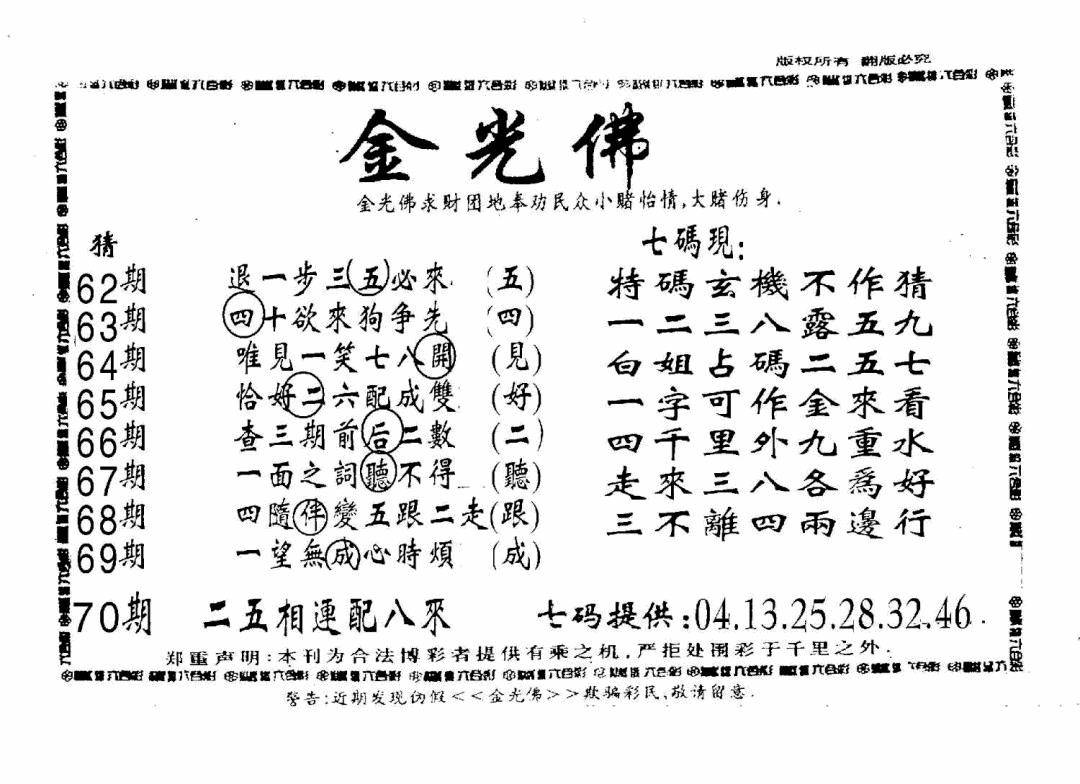 版权所有 翻版必究
金光佛
金光佛求财团地奉劝民众小赌怡情,大赌伤身.
猜
62期 退一步三五必來 (五)
63期 四十欲來狗争先 (四)
64期 唯見一笑七八開 (見)
65期 恰好二六配成雙 (好)
66期 查三期前后二數 (二)
67期 一面之詞聽不得 (聽)
68期 四隨伴變五跟二走(跟)
69期 一望無成心時煩 (成)
七碼現:
特碼玄機不作猜
一二三八露五九
白姐占碼二五七
一字可作金來看
四千里外九重水
走來三八各爲好
三不離四兩邊行
70期 二五相連配八來 七码提供:04.13.25.28.32.46
郑重声明:本刊为合法博彩者提供有乘之机,严拒处围彩于千里之外.
警告:近期发现伪假<<金光佛>>欺骗彩民,敬请留意.